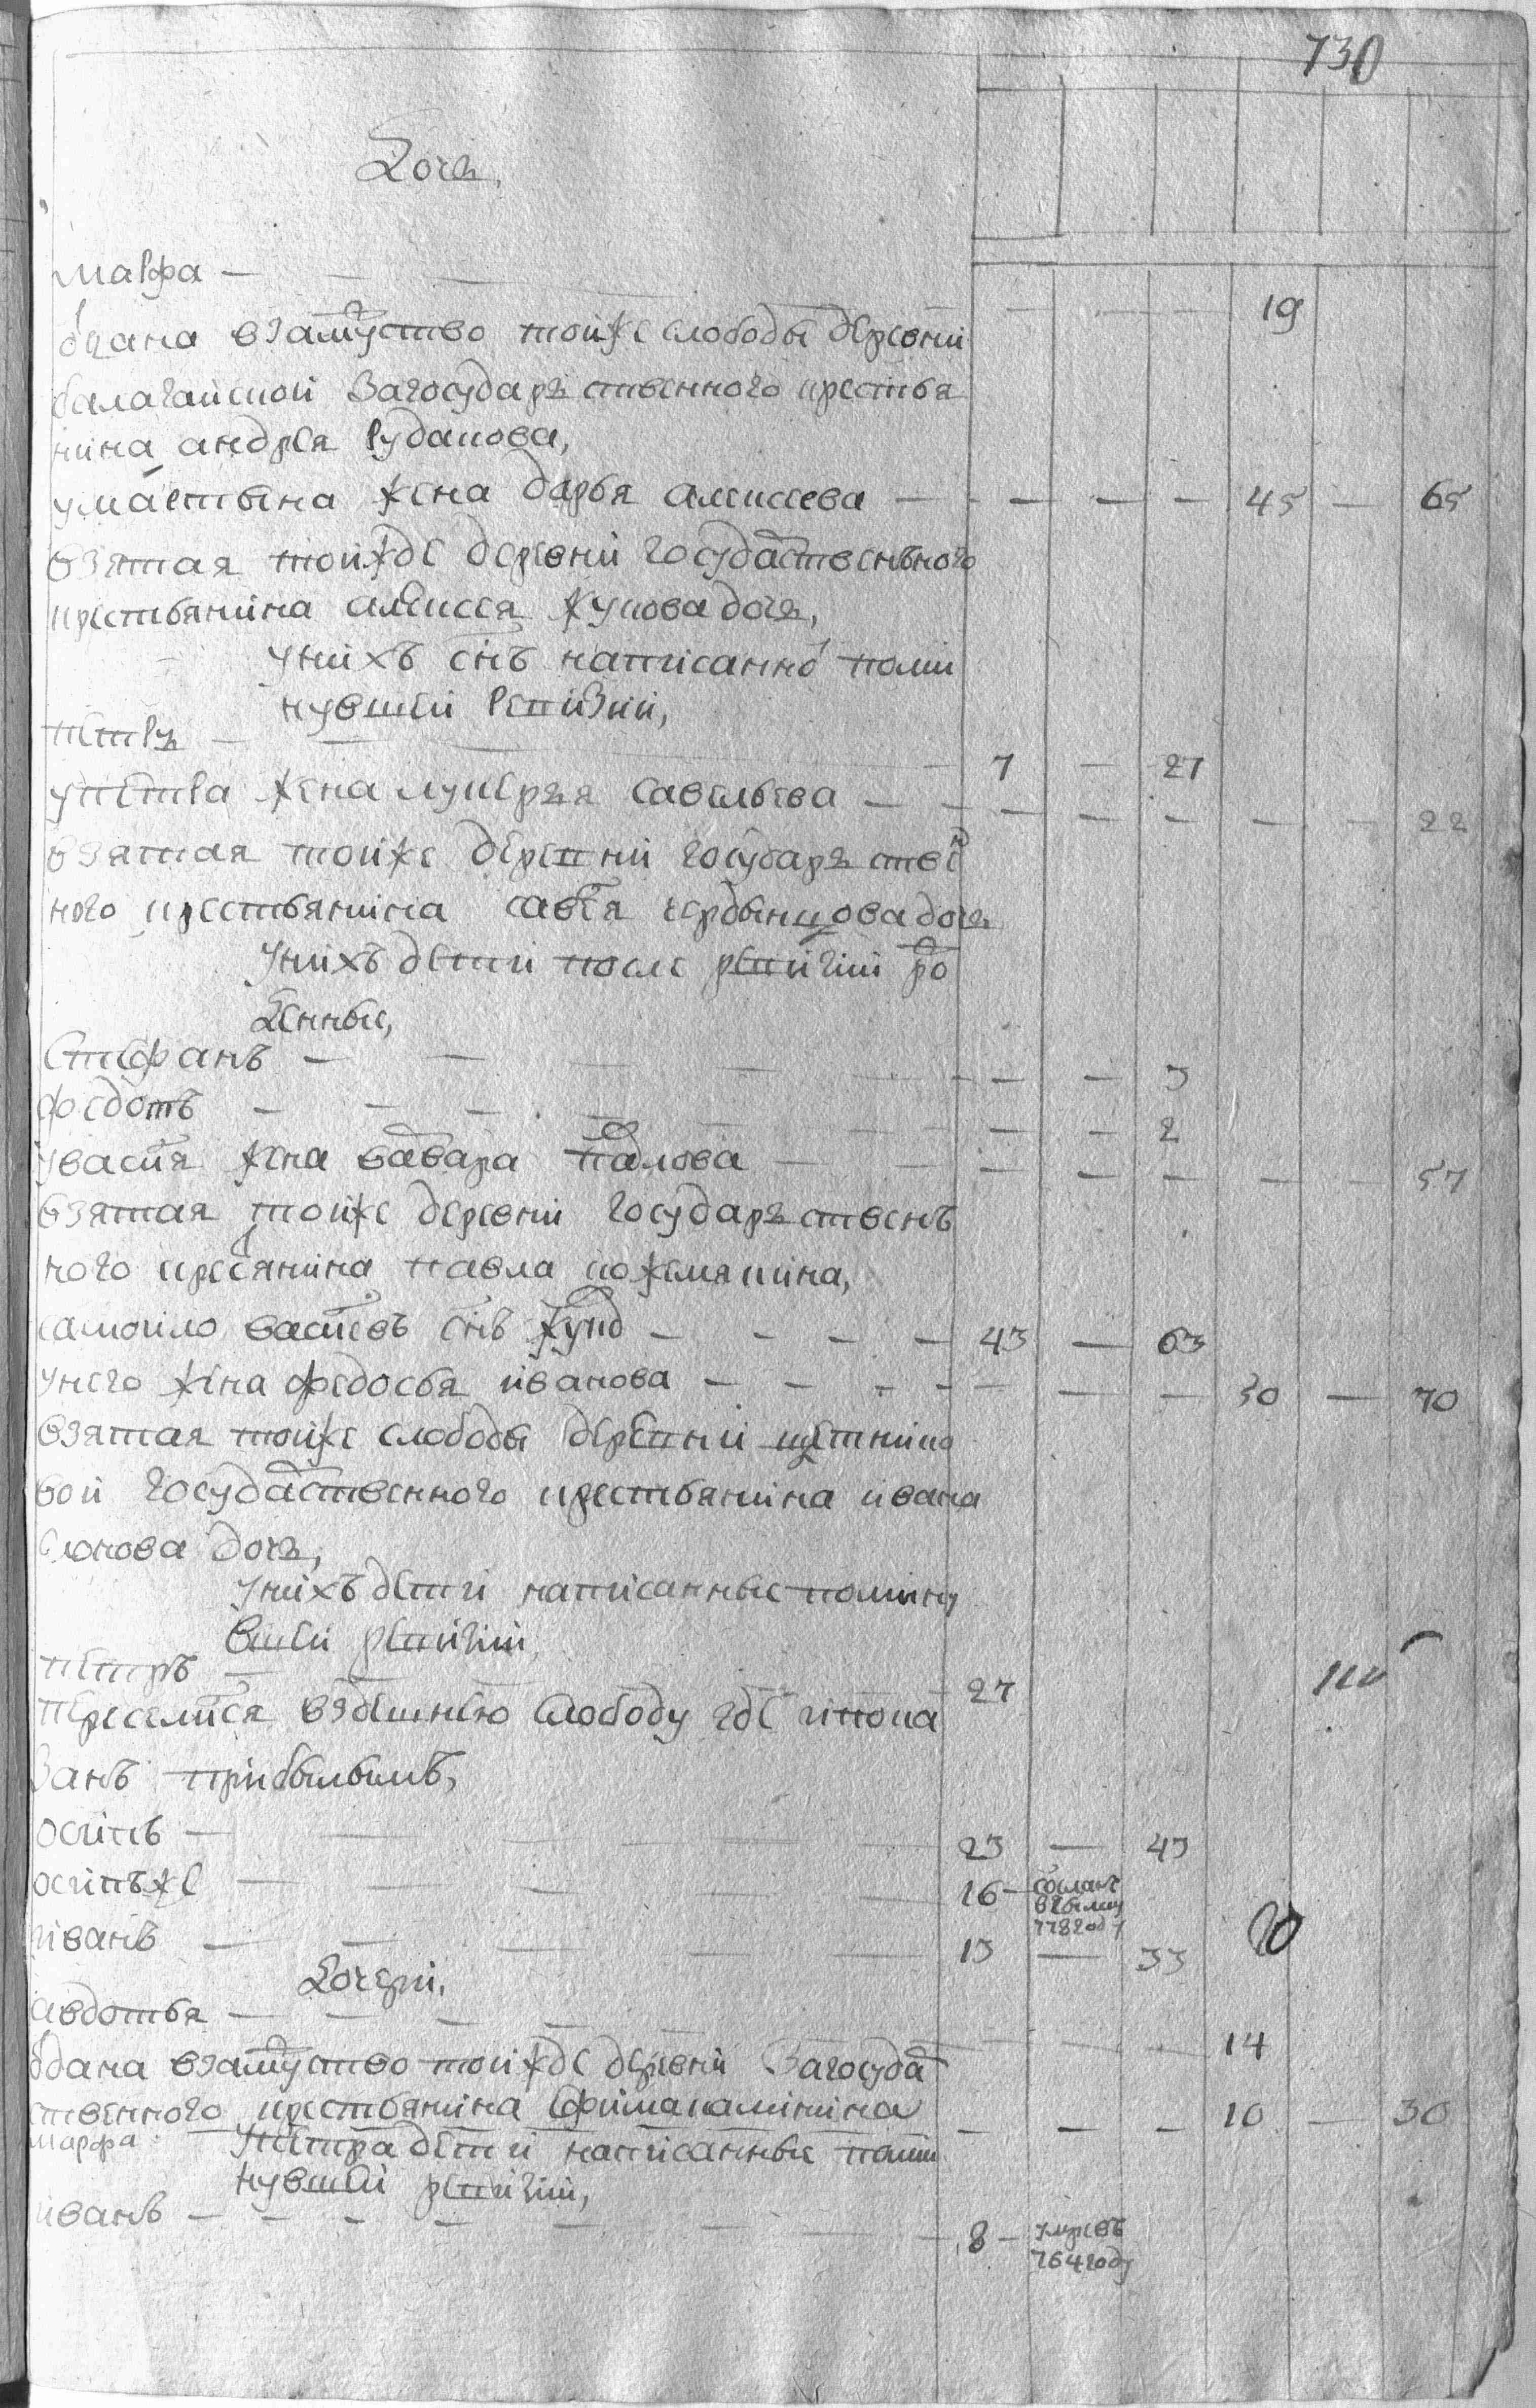 730
Дочь,
марфа — 19
отдана взамуство тойже слободы деревни
балагайской загосударственного крестья
нина андрея рудакова,
жена дарья алексеева — — — — 45 — 65
взятая тойжде деревни государственного
крестьянина алексея жукова дочь,
унихъ снъ написанно помі
нувшей ревизии,
петръ — 7 — 27
упетра жена лукерья савельева — — — — — — 22
взятая тойже деревни государствен
ного крестьянина савеля чердынцова дочь
унихъ дети после ревизии ро
жденные,
Стефанъ — — — 3
федотъ — — — 2
увасиля жена варвара павлова — — — — — 57
взятая тойже деревни государственъ
ного кресянина павла кожемякина,
самоило васильевъ снъ жуков — — — — 43 — 63
унего жена федосья иванова — — — — — — — 50 — 70
взятая тойже слободы деревни щетнико
вой государственного крестьянина ивана
дочь,
унихъ дети написанные помину
вшей ревизии,
петръ — 27
переселился вздешнею слободу где ипока
занъ прибылымъ,
осипъ — 23 — 43
осипъже — 16 —
778 году
иванъ — 13 — 33
20
Дочери,
авдотья — 14
отдана взамуство тойжде деревни загосудар
ственного крестьянина
марфа — — — — 10 — 30
упетра дети написанные помі
нувшей ревизии,
иванъ — 8 — умре въ
764 году